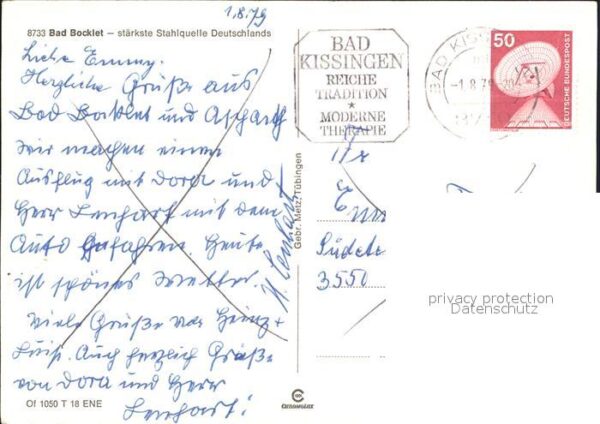 1.8.79
8733 Bad Bocklet – stärkste Stahlquelle Deutschlands
Liebe Emmy.
Herzliche Grüße aus
Bad Bocklet und Aschach
wir machen einen
Ausflug mit Dora und
Herr Lenhart mit dem
Auto Gefahren. Heute
ist schönes Wetter.
Viele Grüße von Heinz +
Luise. Auch herzlich Grüße
von Dora und Herr
Lenhart!
H. Lenhart
Of 1050 T 18 ENE
Gebr. Metz, Tübingen
CEKUMULAX
BAD
KISSINGEN
REICHE
TRADITION
★
MODERNE
THERAPIE
BAD KISS
-1.8.79
50
DEUTSCHE BUNDESPOST
Sudete
3550
privacy protection
Datenschutz